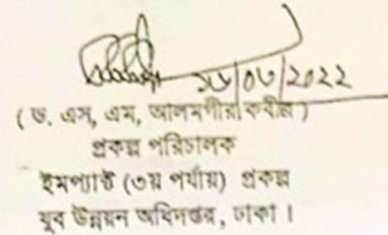 ১৬/০৩/2022
( ড. এস, এম, আলমগীর কবীর )
প্রকল্প পরিচালক
ইমপ্যাক্ট (৩য় পর্যায়) প্রকল্প
যুব উন্নয়ন অধিদপ্তর, ঢাকা ।